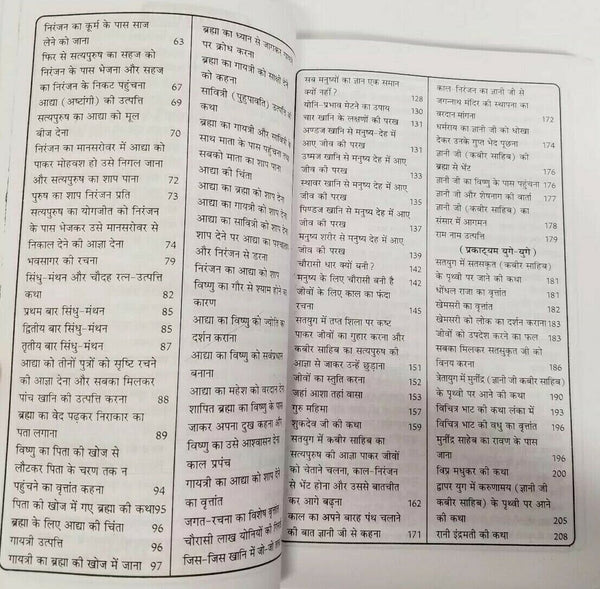 निरंजन का कूर्म के पास साज
लेने को जाना 63
फिर से सत्यपुरुष का सहज को
निरंजन के पास भेजना और सहज
का निरंजन के निकट पहुंचना 67
आद्या (अष्टांगी) की उत्पत्ति 69
सत्यपुरुष का आद्या को मूल
बीज देना 70
निरंजन का मानसरोवर में आद्या को
पाकर मोहवश हो उसे निगल जाना
और सत्यपुरुष का शाप पाना 72
पुरुष का शाप निरंजन प्रति 73
सत्यपुरुष का योगजीत को निरंजन
के पास भेजकर उसे मानसरोवर से
निकाल देने की आज्ञा देना 74
भवसागर की रचना 79
सिंधु-मंथन और चौदह रत्न-उत्पत्ति
कथा 82
प्रथम बार सिंधु-मंथन 85
द्वितीय बार सिंधु-मंथन 85
तृतीय बार सिंधु-मंथन 87
आद्या को तीनों पुत्रों को सृष्टि रचने
की आज्ञा देना और सबका मिलकर
पांच खानि की उत्पत्ति करना 88
ब्रह्मा का वेद पढ़कर निराकार का
पता लगाना 89
विष्णु का पिता की खोज से
लौटकर पिता के चरण तक न
पहुंचने का वृत्तांत कहना 94
पिता की खोज में गए ब्रह्मा की कथा95
ब्रह्मा के लिए आद्या की चिंता 96
गायत्री उत्पत्ति 96
गायत्री का ब्रह्मा की खोज में जाना 97
ब्रह्मा का ध्यान से जागकर
पर क्रोध करना
ब्रह्मा का गायत्री को साक्षी देने
को कहना
सावित्री (पुहुपावति) उत्पत्ति की
कथा
ब्रह्मा का गायत्री और सावित्री के
साथ माता के पास पहुंचना तथा
सबको माता का शाप पाना
आद्या की चिंता
आद्या का ब्रह्मा को शाप देना
आद्या का गायत्री को शाप देना
आद्या का सावित्री को शाप देना
शाप देने पर आद्या का पश्चाताप
और निरंजन से डरना
निरंजन का आद्या को शाप
विष्णु का गौर से श्याम होने का
कारण
आद्या का विष्णु को ज्योति का
दर्शन कराना
आद्या का विष्णु को सर्वप्रधान
बनाना
आद्या का महेश को वरदान देना
शापित ब्रह्मा का विष्णु के पास
जाकर अपना दुख कहना और
विष्णु का उसे आश्वासन देना
काल प्रपंच
गायत्री का आद्या को शाप देने
का वृत्तांत
जगत-रचना का विशेष वृत्तांत
चौरासी लाख योनियों की
जिस-जिस खानि में जो-जो
सब मनुष्यों का ज्ञान एक समान
क्यों नहीं? 128
योनि-प्रभाव मेटने का उपाय 130
चार खानि के लक्षणों की परख 131
अण्डज खानि से मनुष्य-देह में आए
जीव की परख 131
उष्मज खानि से मनुष्य देह में आए
जीव की परख 135
स्थावर खानि से मनुष्य देह में आए
जीव की परख 135
पिण्डज खानि से मनुष्य-देह में आए
जीव की परख 137
मनुष्य शरीर से मनुष्य देह में आए
जीव की परख 139
चौरासी धार क्यों बनी? 142
मनुष्य के लिए चौरासी बनी है 142
जीवों के लिए काल का फंदा
रचना 145
सतयुग में तप्त शिला पर कष्ट
पाकर जीवों का गुहार करना और
कबीर साहिब का सत्यपुरुष की
आज्ञा से जाकर उन्हें छुड़ाना 151
जीवों का स्तुति करना 152
जहां आशा तहां वासा 151
गुरु महिमा 157
शुकदेव जी की कथा 157
सतयुग में कबीर साहिब का
सत्यपुरुष की आज्ञा पाकर जीवों
को चेताने चलना, काल-निरंजन
से भेंट होना और उससे बातचीत
कर आगे बढ़ना 162
काल का अपने बारह पंथ चलाने
की बात ज्ञानी जी से कहना 171
काल निरंजन का ज्ञानी जी से
जगन्नाथ मंदिर की स्थापना का
वरदान मांगना 172
धर्मराय का ज्ञानी जी को धोखा
देकर उनके गुप्त भेद पूछना 174
ज्ञानी जी (कबीर साहिब) की
ब्रह्मा से भेंट 176
ज्ञानी जी का विष्णु के पास पहुंचना 176
ज्ञानी जी और शेषनाग की वार्ता 177
ज्ञानी जी (कबीर साहिब) का
संसार में आगमन 178
राम नाम उत्पत्ति 179
(प्रकाट्यम युगे-युगे)
सतयुग में सतसकृत (कबीर साहिब)
के पृथ्वी पर जाने की कथा 181
धोंधल राजा का वृत्तांत 181
खेमसरी का वृत्तांत 182
खेमसरी को लोक का दर्शन कराना 183
जीवों को उपदेश करने का फल 183
सबका मिलकर सतसुकृत जी को
विनय करना 186
त्रेतायुग में मुनींद्र (ज्ञानी जी कबीर साहिब)
के पृथ्वी पर आने की कथा 190
विचित्र भाट की कथा लंका में 193
विचित्र भाट की वधु का वृत्तांत 195
मुनींद्र साहिब का रावण के पास
जाना 196
विप्र मधुकर की कथा 200
द्वापर युग में करुणामय (ज्ञानी जी
कबीर साहिब) के पृथ्वी पर आने
की कथा 205
रानी इंद्रमती की कथा 208